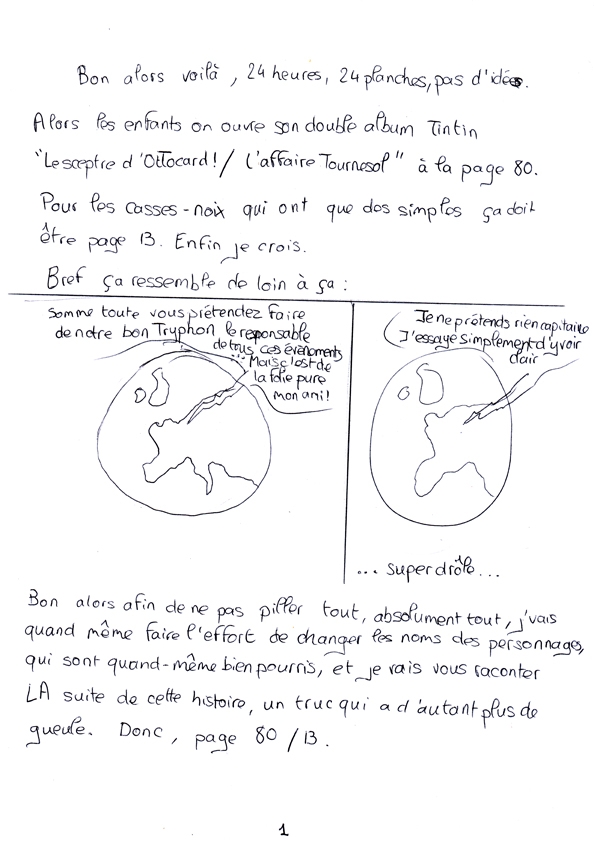 Bon alors voilà, 24 heures, 24 planches, pas d'idées.
Alors les enfants on ouvre son double album Tintin
"Le sceptre d'Ottocard! / L'affaire Tournesol" à la page 80.
Pour les casses-noix qui ont que des simples ça doit
être page 13. Enfin je crois.
Bref ça ressemble de loin à ça :
Somme toute vous prétendez faire
de notre bon Tryphon le responsable
de tous ces évènements
... Mais c'est de
la folie pure
mon ami!
Je ne prétends rien capitaine
J'essaye simplement d'y voir
clair
... Super drôle...
Bon alors afin de ne pas piller tout, absolument tout, j'vais
quand même faire l'effort de changer les noms des personnages,
qui sont quand-même bien pourris, et je vais vous raconter
LA suite de cette histoire, un truc qui a d'autant plus de
gueule. Donc, page 80 / 13.
1